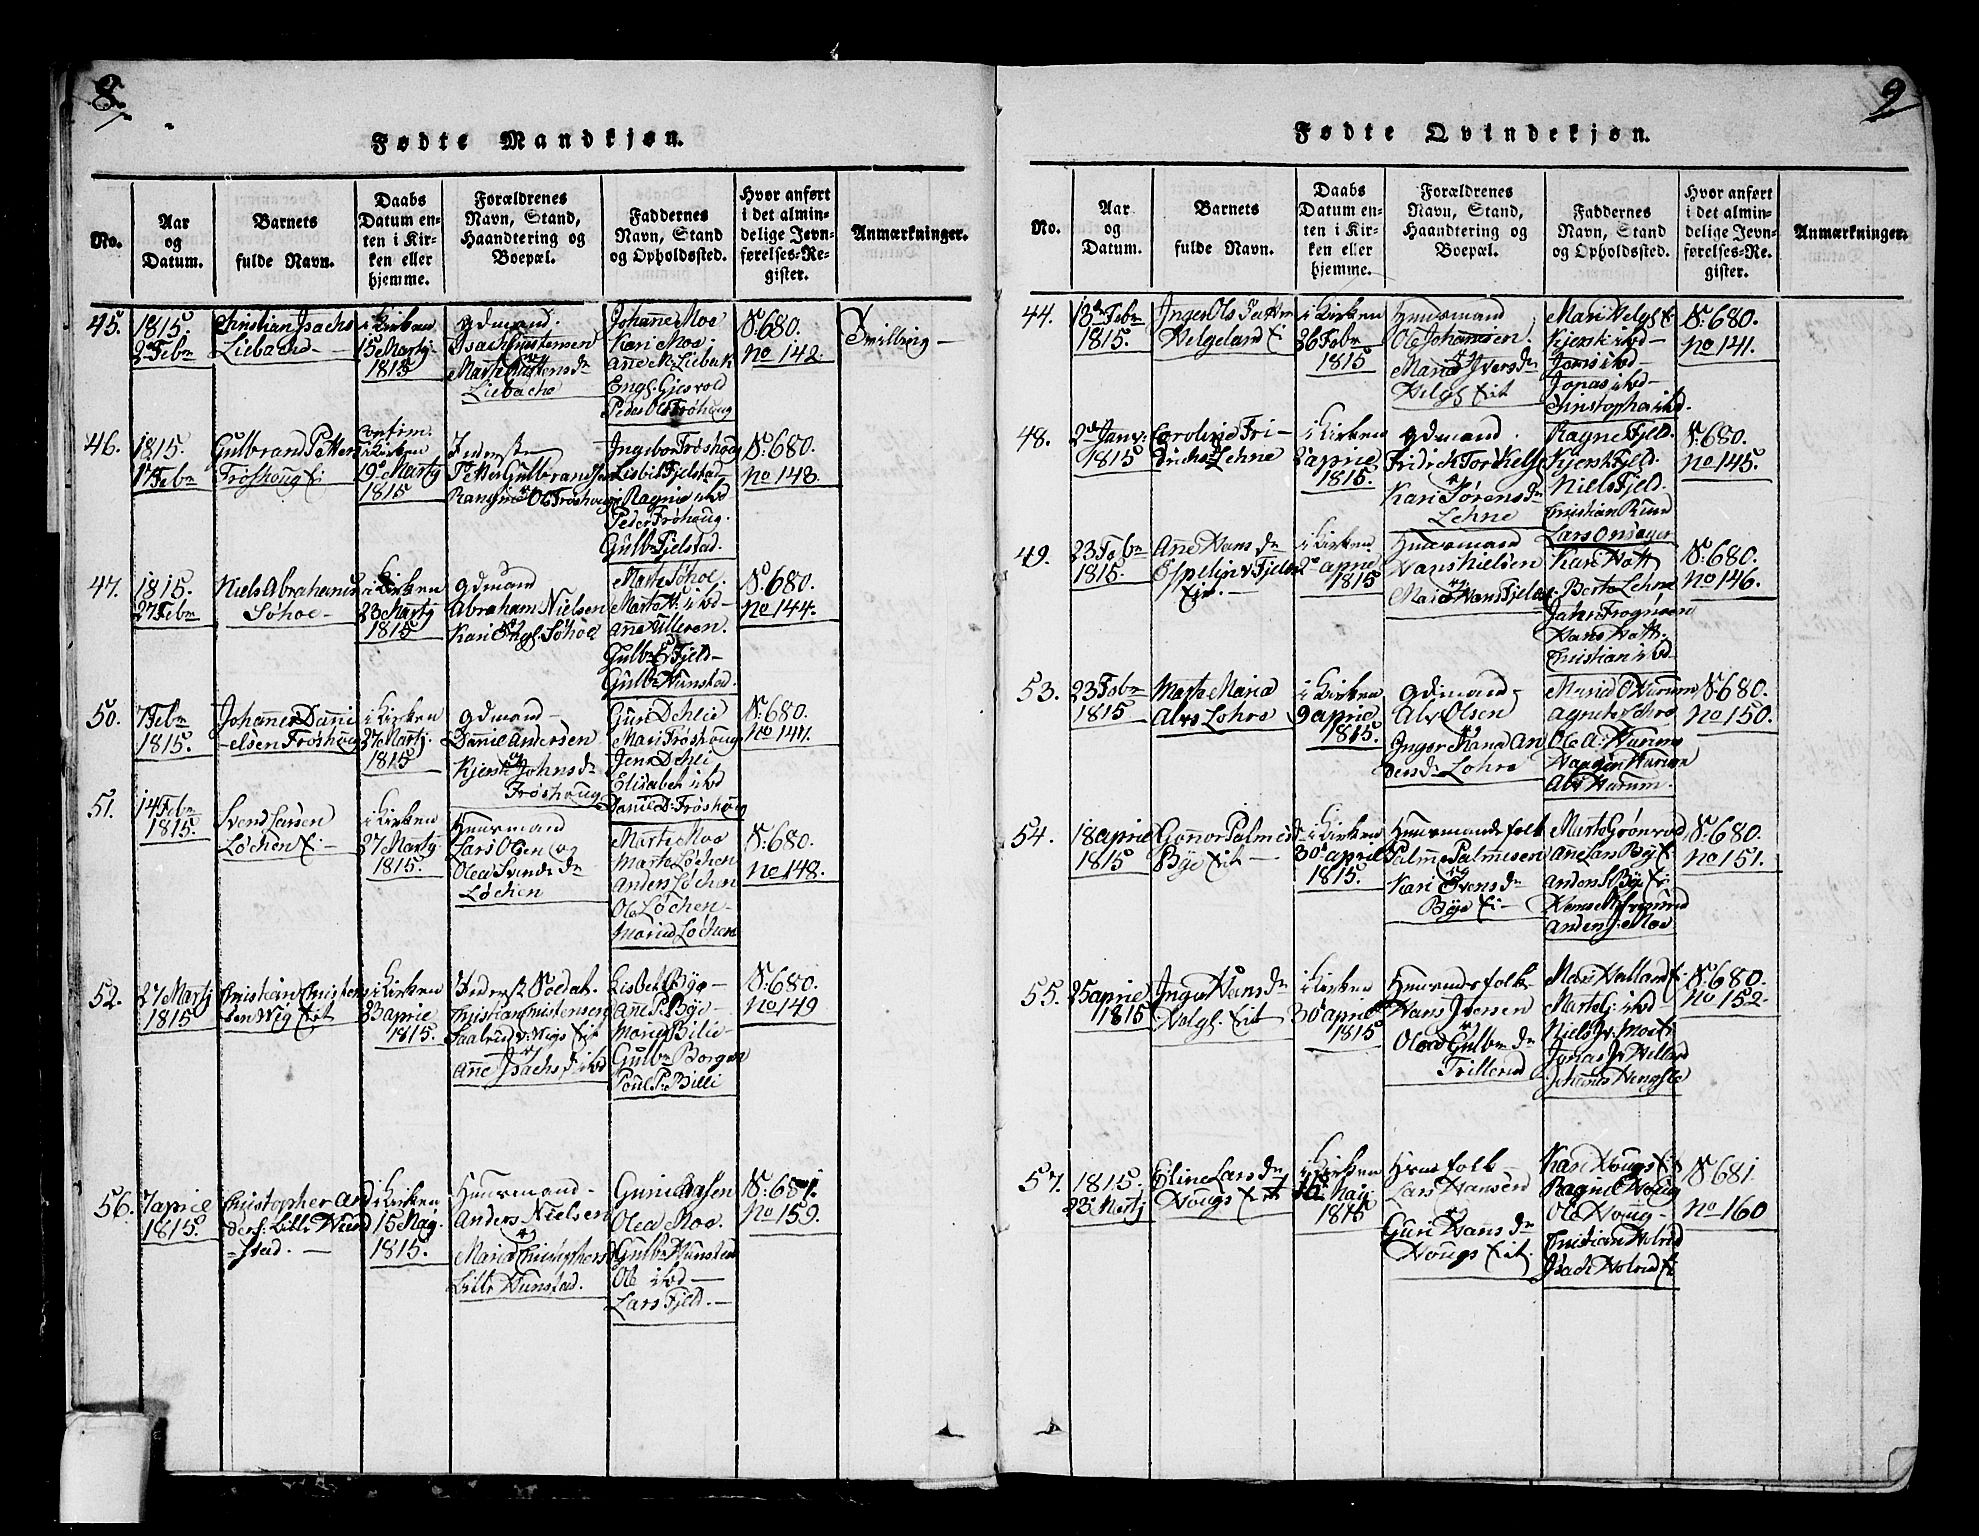 8.
Fødte Mandkjøn.
No.
Aar
og
Datum.
Barnets
fulde Navn.
Daabs
Datum en-
ten i Kir-
ken eller
hjemme.
Forældrenes
Navn, Stand,
Haandtering og
Boepæl.
Faddernes
Navn, Stand
og Opholdssted.
Hvor anført
i det almin-
delige Jevn-
førelses-Re-
gister.
Anmærkninger.
45.
1815.
2de Febr
Christian Isachs
Liebache
i Kirken
15 Martj
1815
Gdmand.
Isach Christensen
og
Marthe Christensdr
Liebache
Johanne Moe
Kari Moe.
Anne M. Liebak
Engl. Gjesvold
Peder Ols Frøhoug
S: 680.
No 142.
Tvilling
46.
1815.
17 Febr
Gulbrand Petter
Frøshoug Ei
confirm.
i Kirken
19 Martj
1815
Inderst
Petter Gulbrands
Rangne Ols Frøshoug
Ingebor Frøshoug
Lisbit Fjelstad
Ragne ibd
Peder Frøhoug.
Gulbr Fjelstad.
S: 680.
No 143.
47.
1815.
27 Febr
Niels Abrahams
Søhoe
i Kirken
23 Martj
1815
Gdmand
Abraham Nielsen
og
Kari Engl. Søhoe
Marte Søhoe.
Marte N: ibd
Anne Ulleren.
Gulbr E Fjeld
Gulbr Hunstad.
S: 680.
No 144.
50.
7 Febr
1815.
Johannes Dani
elsen Frøshoug
i Kirken
27 Martj.
1815
Gdmand
Daniel Andersen
og
Kjersti Johnsdr
Frøshoug
Guri Dehlie
Mari Frøshoug
Jens Dehli
Elisabet ibd
Daniel D: Frøshoug
S: 680.
No 147.
51.
14 Febr
1815.
Svend Larsen
Løchen Ei
i Kirken
27 Martj
1815.
Huusmand
Lars Olsen og
Olea Svends Dr
Løchen
Marte Moe
Marte Løchen
Anders Løchen
Ole Løchen
Maria Løchen
S: 680.
No 148.
52.
27 Martj
1815
Christian Christen
sen Wig Eit
i Kirken
23 Aprie
1815.
Inderst Soldat.
Christian Christensen
Anne Isachs d ibd
Lisbet Bye
Anne P. Bye
Gulbr Borgen
Poul P: Billi
S: 680.
No 149
56.
7 aprie
1815.
Christopher And
ders: Lille Hund
stad.
i Kirken
15 Maj
1815.
Huusmand
Anders Nielsen
og
Maria Christophersd
Lille Hunstad.
Guri Aasen
Olea Moe.
Gulbr Hunstad
Ole ibd
Lars Fjeld.
S: 681.
No 159.
9
Fødte Qvindekjøn.
No.
Aar
og
Datum.
Barnets
fulde Navn.
Daabs
Datum en-
ten i Kir-
ken eller
hjemme.
Forældrenes
Navn, Stand,
Haandtering og
Boepæl.
Faddernes
Navn, Stand
og Opholdssted.
Hvor anført
i det almin-
delige Jevn-
førelses-Re-
gister.
Anmærkninger.
44.
13de Febr
1815.
Inger Ols Datter
Helgeland Ei
i Kirken
26 Febr
1815
Huusmand
Ole Johannsen.
og
Maria Iversdr
Helgl Eit
Mari Helgl E
Kjersti ibd
Jens ibd
Jonas ibd
Christopher ibd.
S: 680.
No 141.
48.
2de Janv:
1815
Caroline Fri
drichs Lehne
i Kirken
2 aprie
1815.
Gdmand.
Fridrick Torkels
og
Kari Sørensdr
Lehne
Ragne Fjeld.
Kjersti Fjeld.
Niels Fjeld.
Christian Ruud
Lars Onsager
S: 680.
No 145.
49.
23 Febr
1815.
Anne Hans dr
Espelin v Fjeld
Eie.
i Kirken
2 aprie
1815
Huusmand
Hans Nielsen
og
Maria Hans Fjeld
Kari Hott
Berte Lehne
Johs: Frogneren
Hans Hott.
Christian ibd
S: 680.
No 146.
53.
23 Febr
1815
Marte Maria
Alvs Lohre
i Kirken
9 aprie
1815.
Gdmand
Alv Olsen
og
Inger Maria An
dersdr Lohre
Maria O Harum
Agnete Lohre
Ole A: Harum
Haagen Harum
Alv Harum.
S: 680.
No 150.
54.
18 aprie
1815
Gonnor Palmesd
Bye Eit
i Kirken
30 april
1815.
Huusmands folk
Palme Palmesen
og
Kari Svensdr
Bye Ei
Marte Grønrud
Anne Lars Bye E
Anders L Bye Ei
Anders J: Moe
S: 680.
No 151.
55.
25 aprie
1815
Inger Hansdr
Helgl. Eit
i Kirken
30 aprie
1815
Huusmds folk
Hans Iversen
og
Olea Gulbr dr
Trillerud
Mari Helland Ei
Niels Jv: Moe E
Jonas Jv Helland
Johannes Hengsle
S: 680.
No 152
57.
1815.
23 Martj
Eline Lars dr
Hougs Eit
i Kirken
15 Maj
1815
Huus folk
Lars Hansen
og
Guri Hansdr
Hougs Eit.
Kari Hougs Eit
Ragne Houg
Ole Houg
Christian Holrud
Isach Holrud Ei
S: 681.
No 160